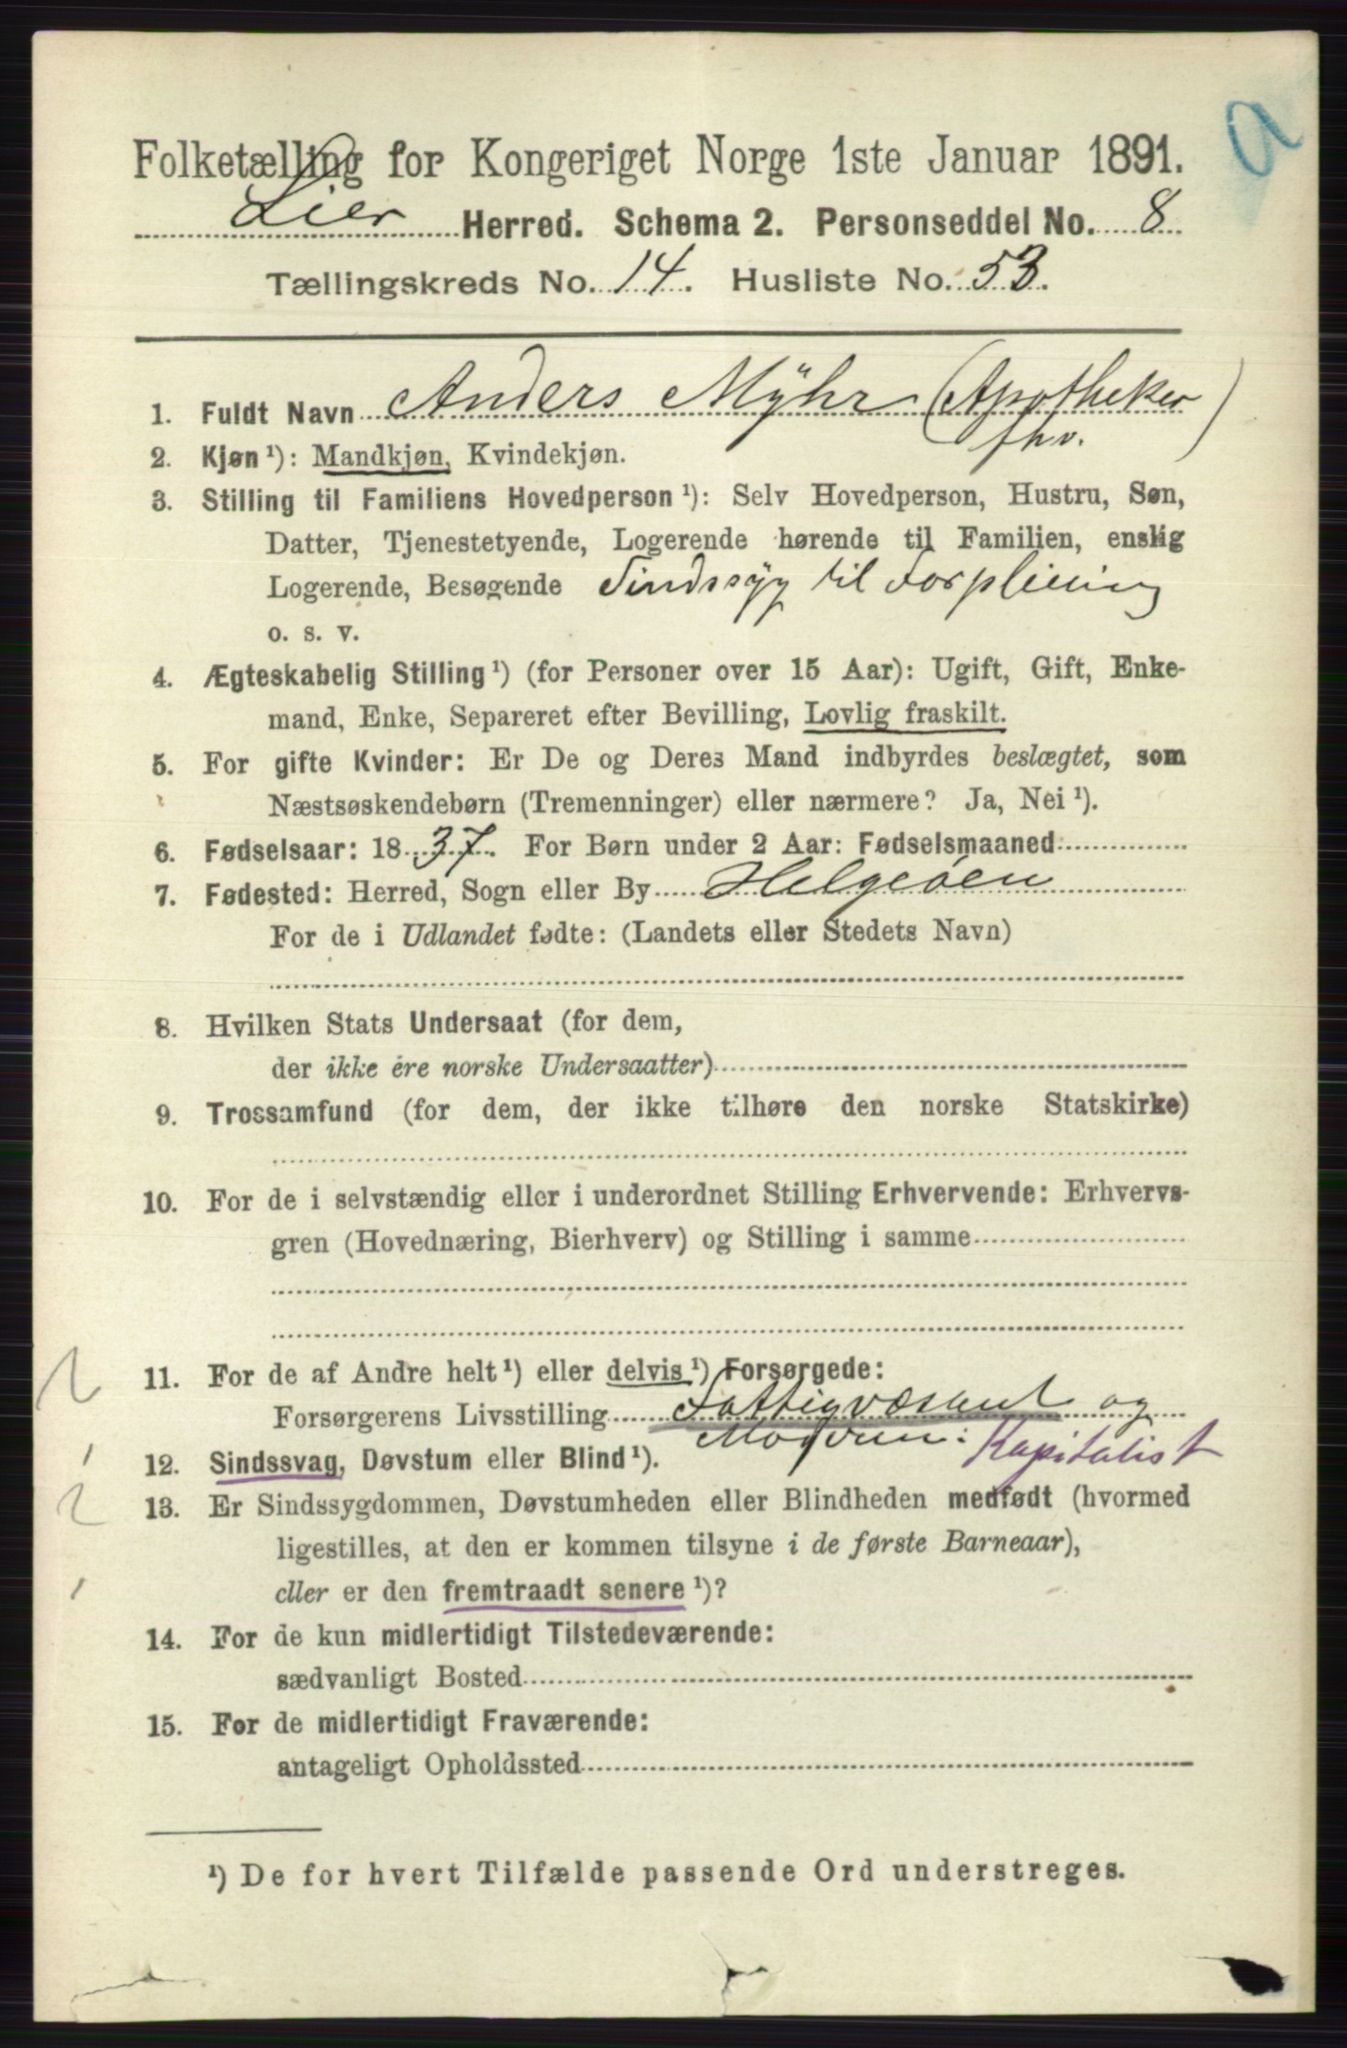 a
Folketælling for Kongeriget Norge 1ste Januar 1891.
Lier Herred. Schema 2. Personseddel No. 8
Tællingskreds No. 14. Husliste No. 53.
1. Fuldt Navn Anders Mÿhr (Apotheker
fhv. )
2. Kjøn ¹): Mandkjøn, Kvindekjøn.
3. Stilling til Familiens Hovedperson ¹): Selv Hovedperson, Hustru, Søn,
Datter, Tjenestetyende, Logerende hørende til Familien, enslig
Logerende, Besøgende Sindssyg til Forpleining
o. s. v.
4. Ægteskabelig Stilling ¹) (for Personer over 15 Aar): Ugift, Gift, Enke-
mand, Enke, Separeret efter Bevilling, Lovlig fraskilt.
5. For gifte Kvinder: Er De og Deres Mand indbyrdes beslægtet, som
Næstsøskendebørn (Tremenninger) eller nærmere? Ja, Nei ¹).
6. Fødselsaar: 1837. For Børn under 2 Aar: Fødselsmaaned
7. Fødested: Herred, Sogn eller By Helgeöen
For de i Udlandet fødte: (Landets eller Stedets Navn)
8. Hvilken Stats Undersaat (for dem,
der ikke ere norske Undersaatter)
9. Trossamfund (for dem, der ikke tilhøre den norske Statskirke)
10. For de i selvstændig eller i underordnet Stilling Erhvervende: Erhvervs-
gren (Hovednæring, Bierhverv) og Stilling i samme
11. For de af Andre helt ¹) eller delvis ¹) Forsørgede:
Forsørgerens Livsstilling Fattigvæsenet og
Moderen: Kapitalist
12. Sindssvag, Døvstum eller Blind ¹).
13. Er Sindssygdommen, Døvstumheden eller Blindheden medfødt (hvormed
ligestilles, at den er kommen tilsyne i de første Barneaar),
eller er den fremtraadt senere ¹)?
14. For de kun midlertidigt Tilstedeværende:
sædvanligt Bosted
15. For de midlertidigt Fraværende:
antageligt Opholdssted
¹) De for hvert Tilfælde passende Ord understreges.